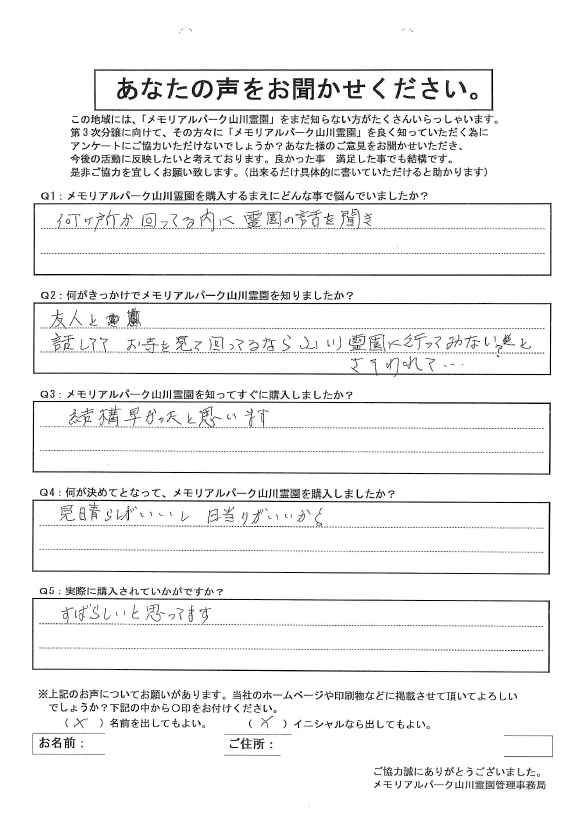 あなたの声をお聞かせください。
この地域には、「メモリアルパーク山川霊園」をまだ知らない方がたくさんいらっしゃいます。
第３次分譲に向けて、その方々に「メモリアルパーク山川霊園」を良く知っていただく為に
アンケートにご協力いただけないでしょうか？あなた様のご意見をお聞かせいただき、
今後の活動に反映したいと考えております。良かった事　満足した事でも結構です。
是非ご協力を宜しくお願い致します。（出来るだけ具体的に書いていただけると助かります）
Ｑ１：メモリアルパーク山川霊園を購入するまえにどんな事で悩んでいましたか？
何ヶ所か回ってる内に霊園の話を聞き
Ｑ２：何がきっかけでメモリアルパーク山川霊園を知りましたか？
友人と
話してて お寺を見て回ってるなら山川霊園に行ってみない？と
さそわれて…
Ｑ３：メモリアルパーク山川霊園を知ってすぐに購入しましたか？
結構早かったと思います
Ｑ４：何が決めてとなって、メモリアルパーク山川霊園を購入しましたか？
見晴らしがいいし 日当りがいいから
Ｑ５：実際に購入されていかがですか？
すばらしいと思ってます
※上記のお声についてお願いがあります。当社のホームページや印刷物などに掲載させて頂いてよろしい
でしょうか？下記の中から○印をお付けください。
（×）名前を出してもよい。　（×）イニシャルなら出してもよい。
お名前：　ご住所：
ご協力誠にありがとうございました。
メモリアルパーク山川霊園管理事務局